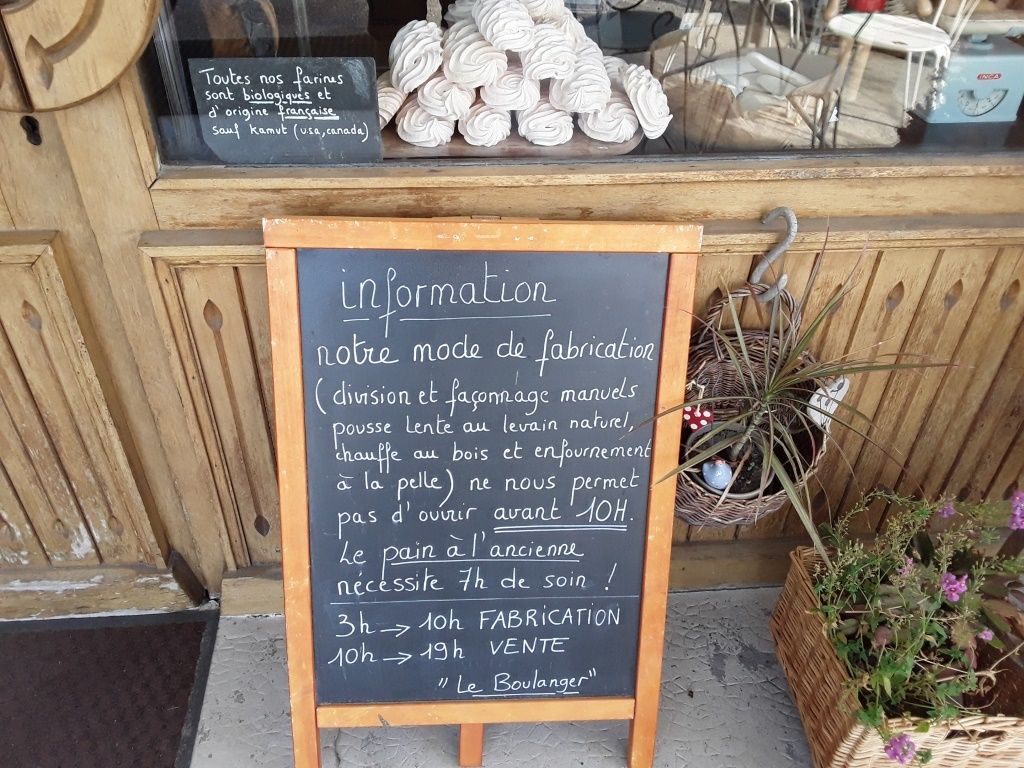 Toutes nos farines
sont biologiques et
d'origine française
sauf kamut (usa, canada)
INCA
information
notre mode de fabrication
(division et façonnage manuels
pousse lente au levain naturel,
chauffe au bois et enfournement
à la pelle) ne nous permet
pas d'ouvrir avant 10H.
Le pain à l'ancienne
nécessite 7h de soin !
3h → 10h FABRICATION
10h → 19h VENTE
"Le Boulanger"